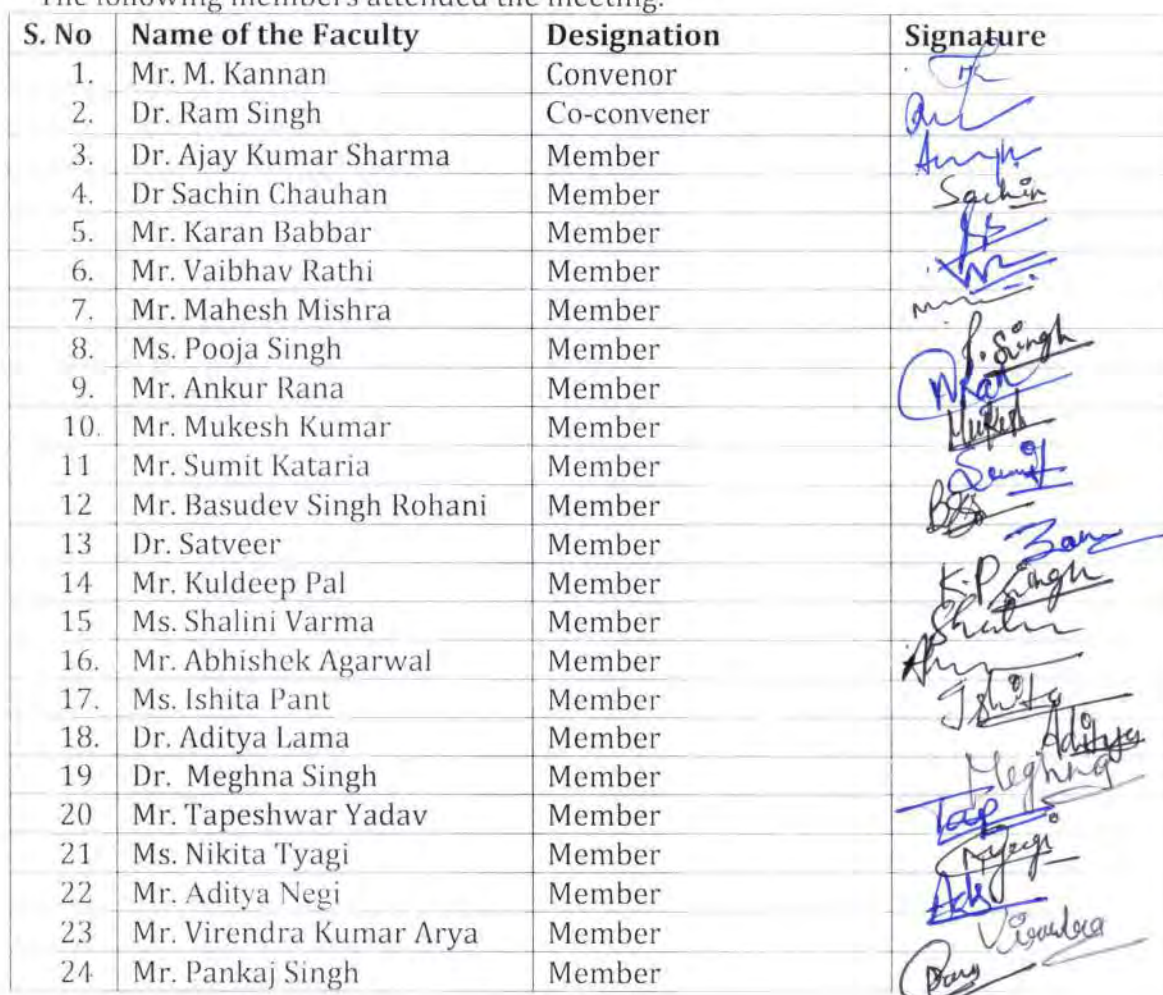 The following members attended the meeting.
S. No Name of the Faculty Designation Signature
1. Mr. M. Kannan Convenor
2. Dr. Ram Singh Co-convener
3. Dr. Ajay Kumar Sharma Member
4. Dr Sachin Chauhan Member Sachin
5. Mr. Karan Babbar Member
6. Mr. Vaibhav Rathi Member
7. Mr. Mahesh Mishra Member
8. Ms. Pooja Singh Member P. Singh
9. Mr. Ankur Rana Member
10. Mr. Mukesh Kumar Member Mukesh
11 Mr. Sumit Kataria Member Sumit
12 Mr. Basudev Singh Rohani Member
13 Dr. Satveer Member
14 Mr. Kuldeep Pal Member K.P Singh
15 Ms. Shalini Varma Member
16. Mr. Abhishek Agarwal Member
17. Ms. Ishita Pant Member Ishita
18. Dr. Aditya Lama Member Aditya
19 Dr. Meghna Singh Member Meghna
20 Mr. Tapeshwar Yadav Member Tap
21 Ms. Nikita Tyagi Member
22 Mr. Aditya Negi Member
23 Mr. Virendra Kumar Arya Member Virendra
24 Mr. Pankaj Singh Member